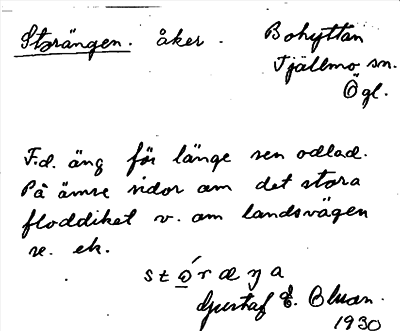 Storängen. åker. Bohyttan
Tjällmo sn.
Ögl.
F.d. äng för länge sen odlad.
På ömse sidor om det stora
floddiket v. om landsvägen
se. ek.
stǫ́ræŋa
Gustaf E. Olsson.
1930